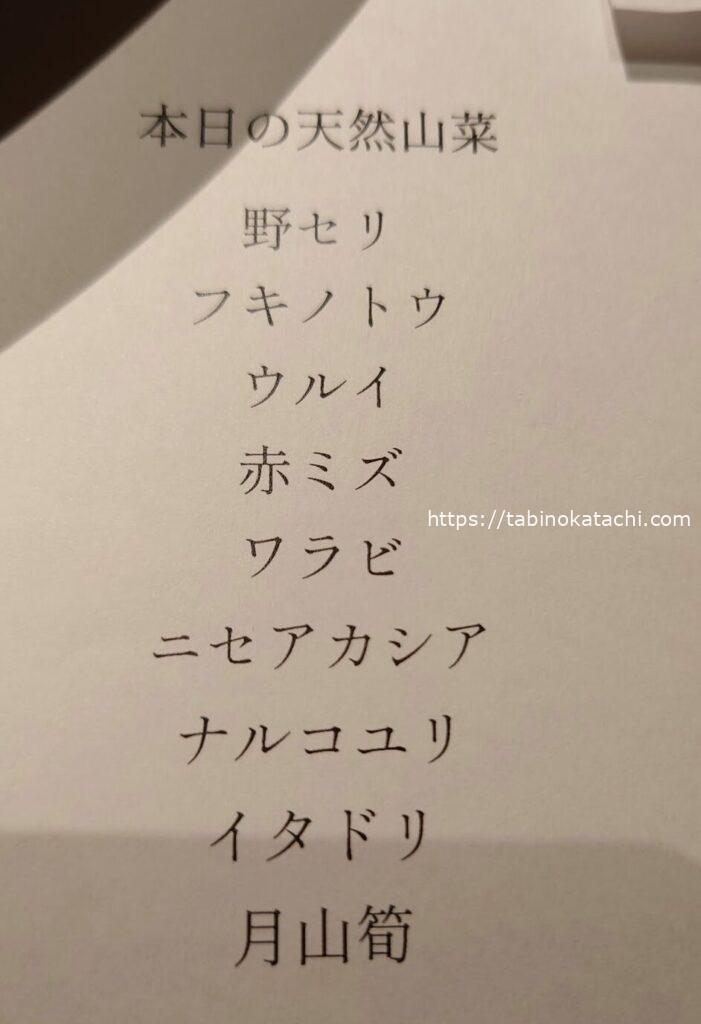 本日の天然山菜
野セリ
フキノトウ
ウルイ
赤ミズ
https://tabinokatachi.com
ワラビ
ニセアカシア
ナルコユリ
イタドリ
月山筍